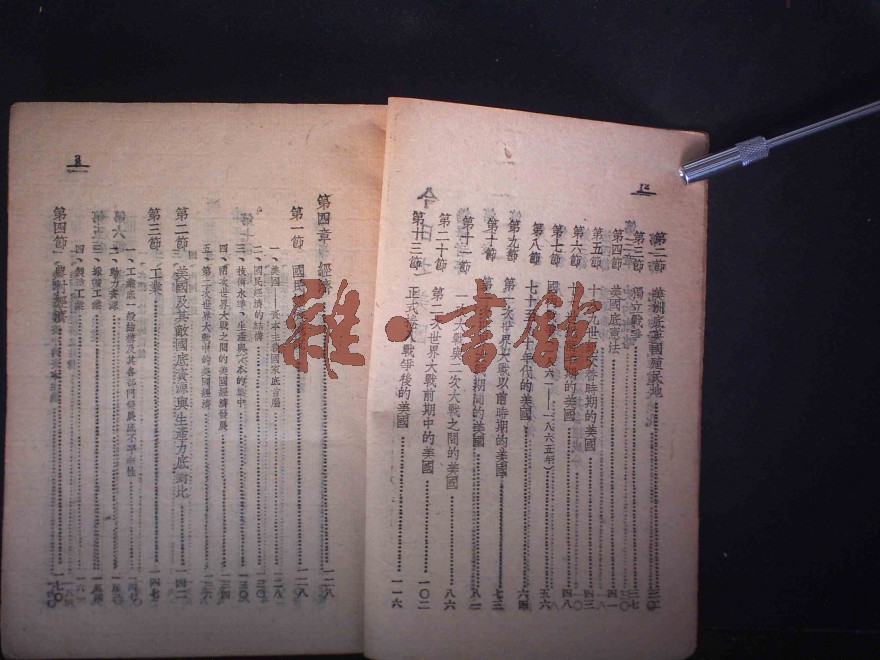 第二節 美洲底英國殖民地 三〇
第三節 獨立戰爭 三七
第四節 美國底憲法 四一
第五節 十九世紀 時期的美國 四三
第六節 的美國 四八
第七節 國 一八六五年） 五六
第八節 七十至 十年代的美國 六四
第九節 第一次世界大戰以前時期的美國 七三
第十節 第 次世界大戰 期間的美國 八二
第十一節 一次大戰與二次大戰之間的美國 八六
第二十節 第二次世界大戰前期中的美國 一〇二
第十三節 正式捲入戰爭後的美國 一一六
第四章 經濟 一二八
第一節 國民 一二八
一、美國——資本主義國家底首屆 一二八
二、國民經濟的結構 一三〇
三、技術水準、生產與資本的集中 一三〇
四、兩次世界大戰之間的美國經濟發展 一三四
五、第二次世界大戰中的美國經濟 一三六
第二節 美國及其敵國底資源與生產力底對比 一四二
第三節 工業 一四七
一、工業底一般結構及其各部門發展底不平衡性 一四七
二、動力資源 一五〇
三、採礦工業 一五四
四、製造工業 一六一
第四節 農村經濟 一七〇
雜·書館